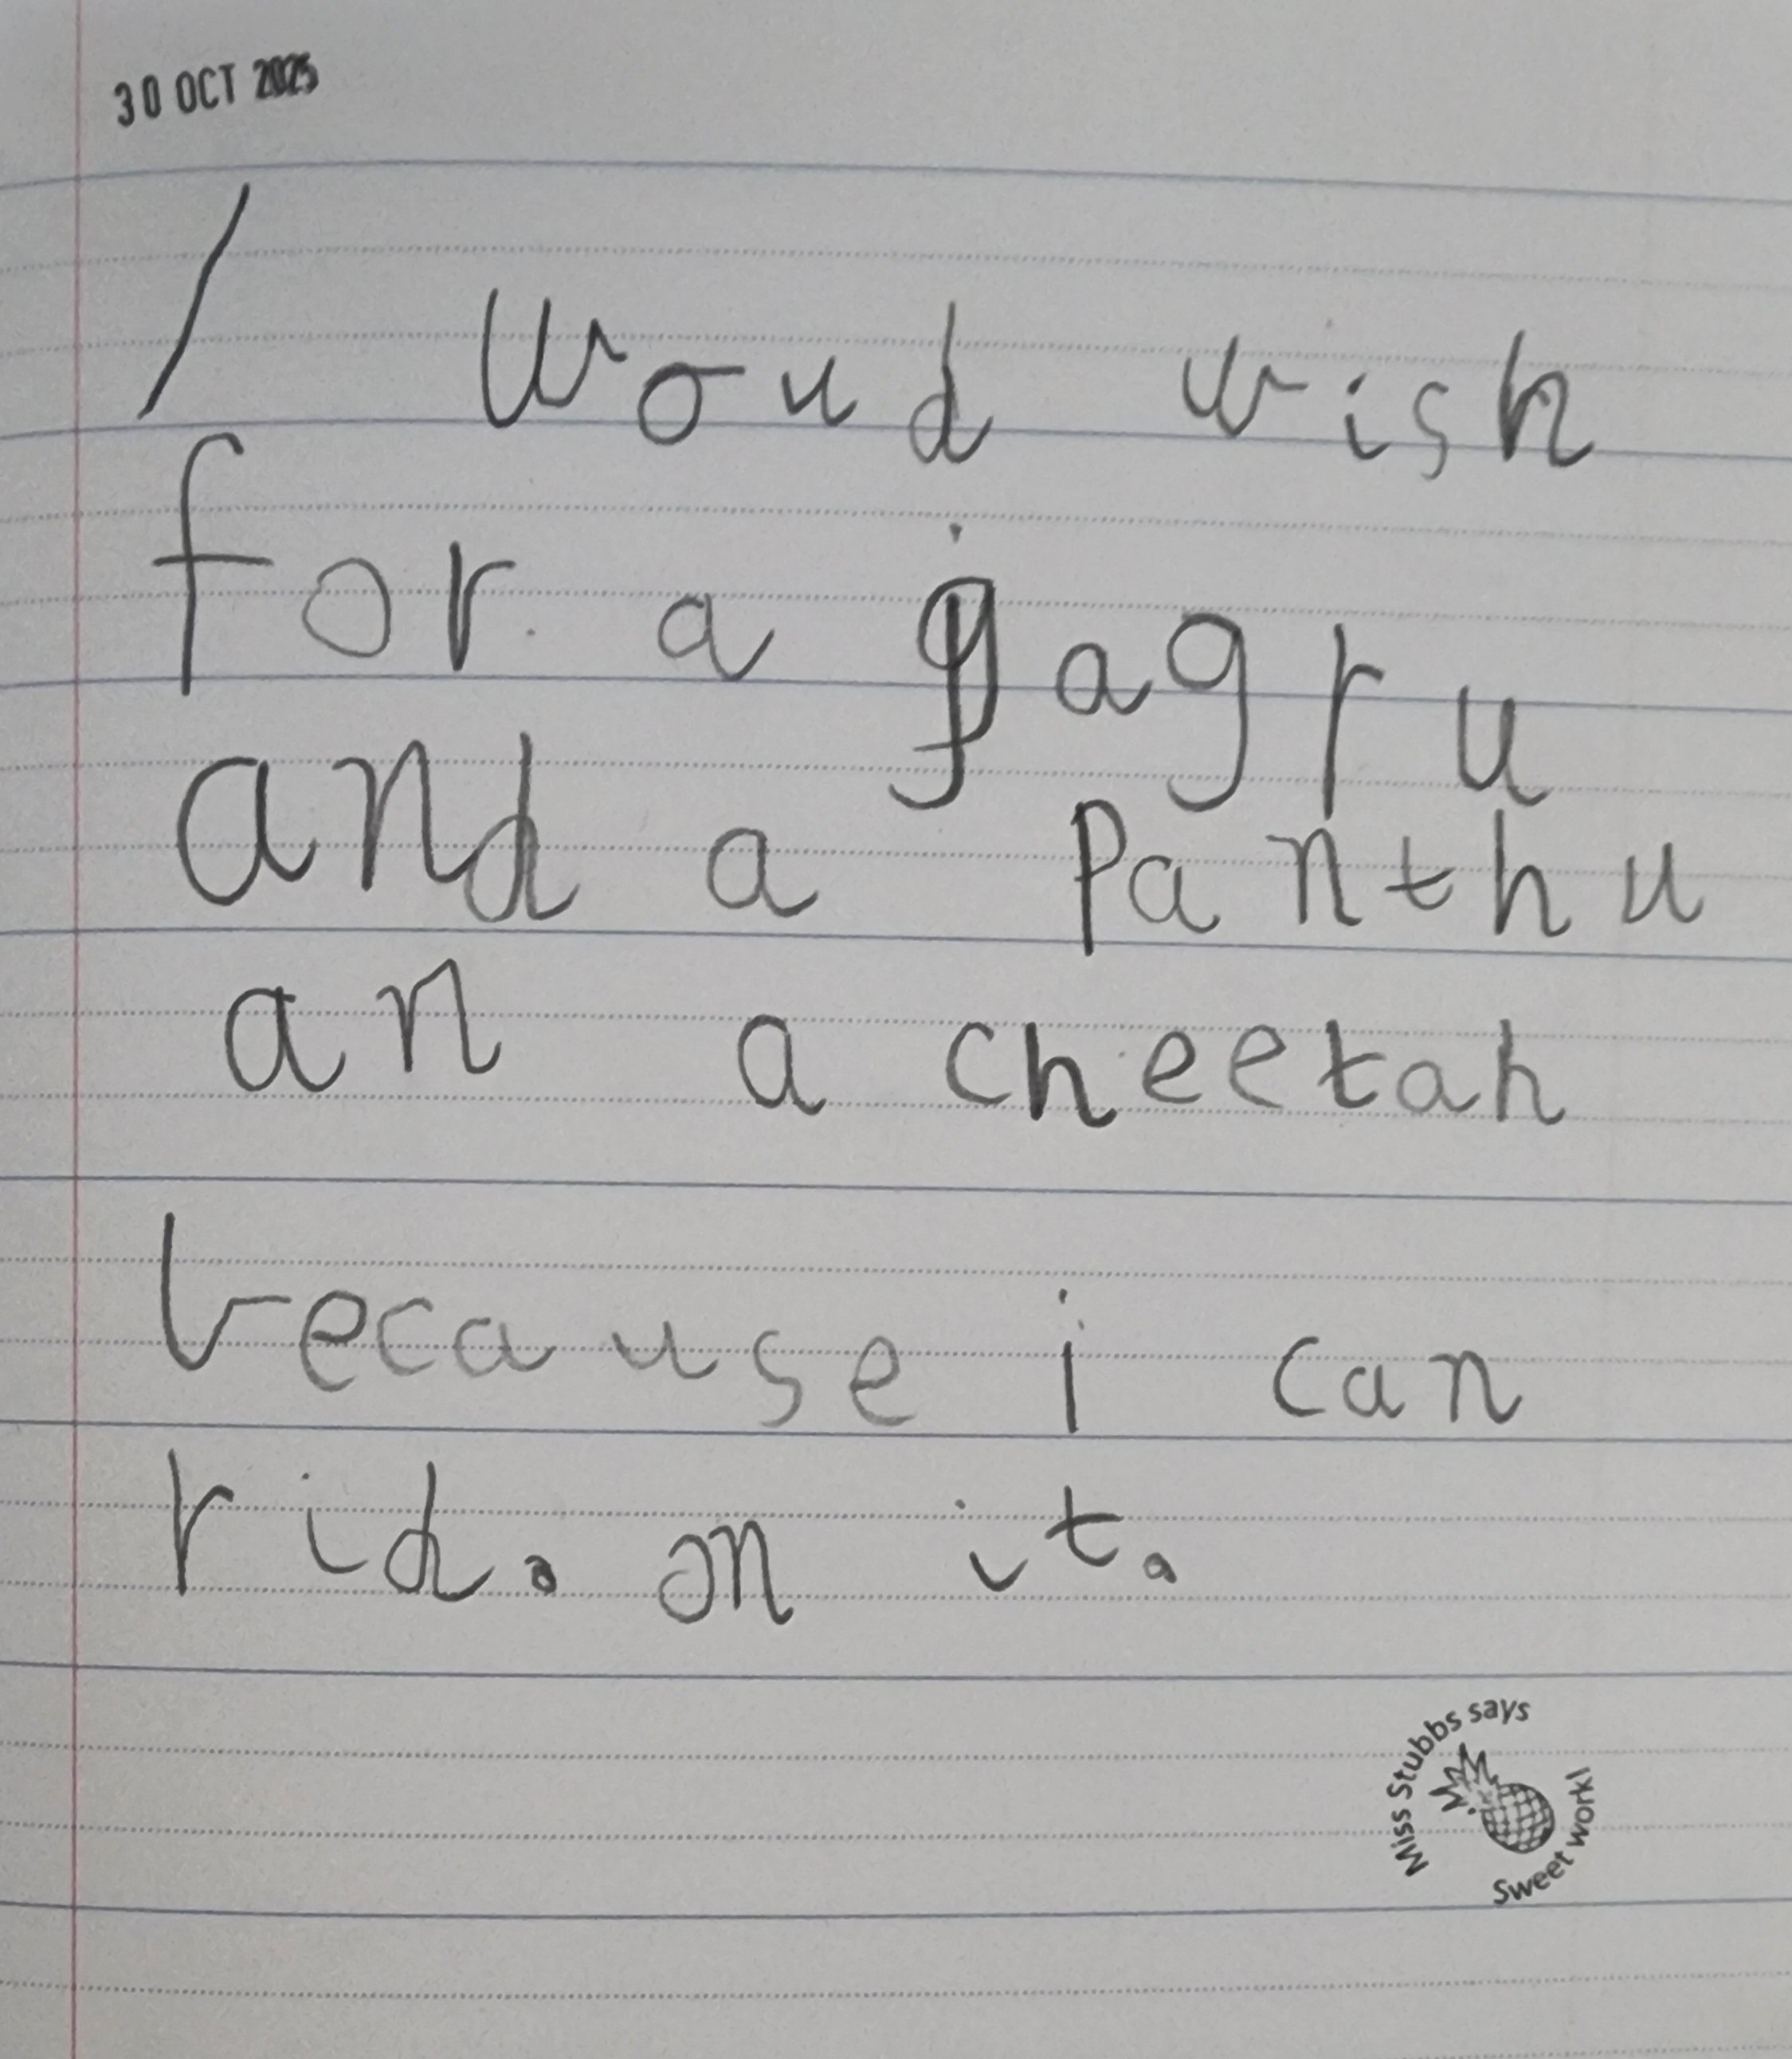 30 OCT 2025
I woud wish
for a jagru
and a Panthu
an a cheetah
because i can
rid. on it.
Miss Stubbs says
Sweet work!